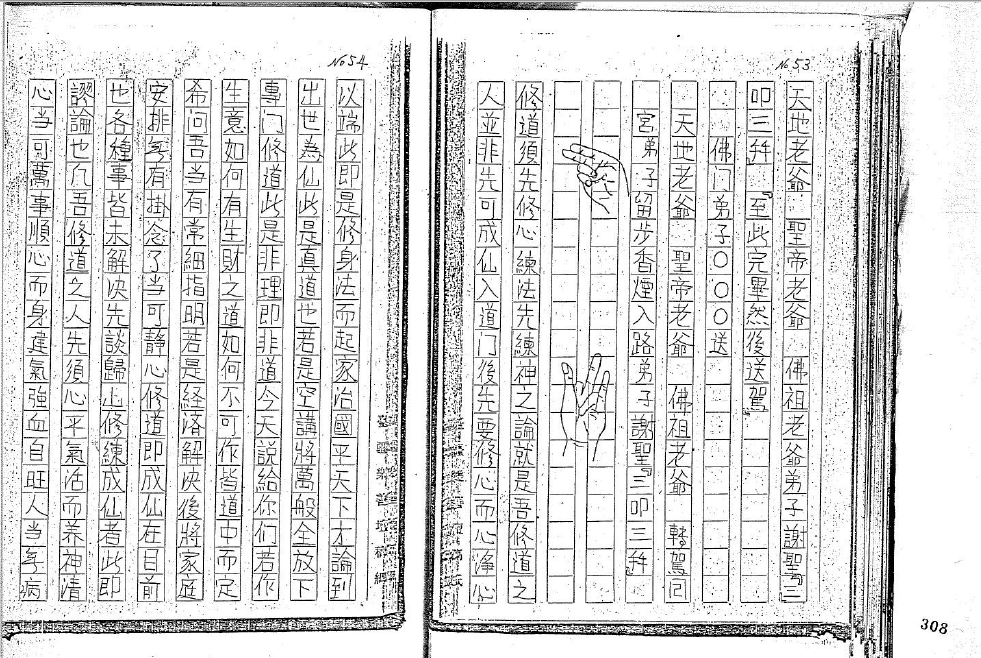 No 53
天地老爺 聖帝老爺 佛祖老爺弟子謝聖『三
叩三拜』至此完畢然後送駕
佛门弟子〇〇〇送
天地老爺 聖帝老爺 佛祖老爺 轉駕回
宮弟子留步香煙入路弟子謝聖『三叩三拜』
修道須先修心練法先練神之論就是吾修道之
人並非先可成仙入道门後先要修心而心净心
No 54
以端此即是修身法而起家治國平天下才論到
出世為仙此是真道也若是空講將萬般全放下
專门修道此是非理即非道今天説给你们若作
生意如何有生財之道如何不可作皆道中而定
希问吾当有常細指明若是经済解决後將家庭
安排無有掛念了当可静心修道即成仙在目前
也各種事皆未解决先談歸山修練成仙者此即
謬論也凡吾修道之人先須心平氣活而养神清
心当可萬事順心而身建氣強血自旺人当無病
308